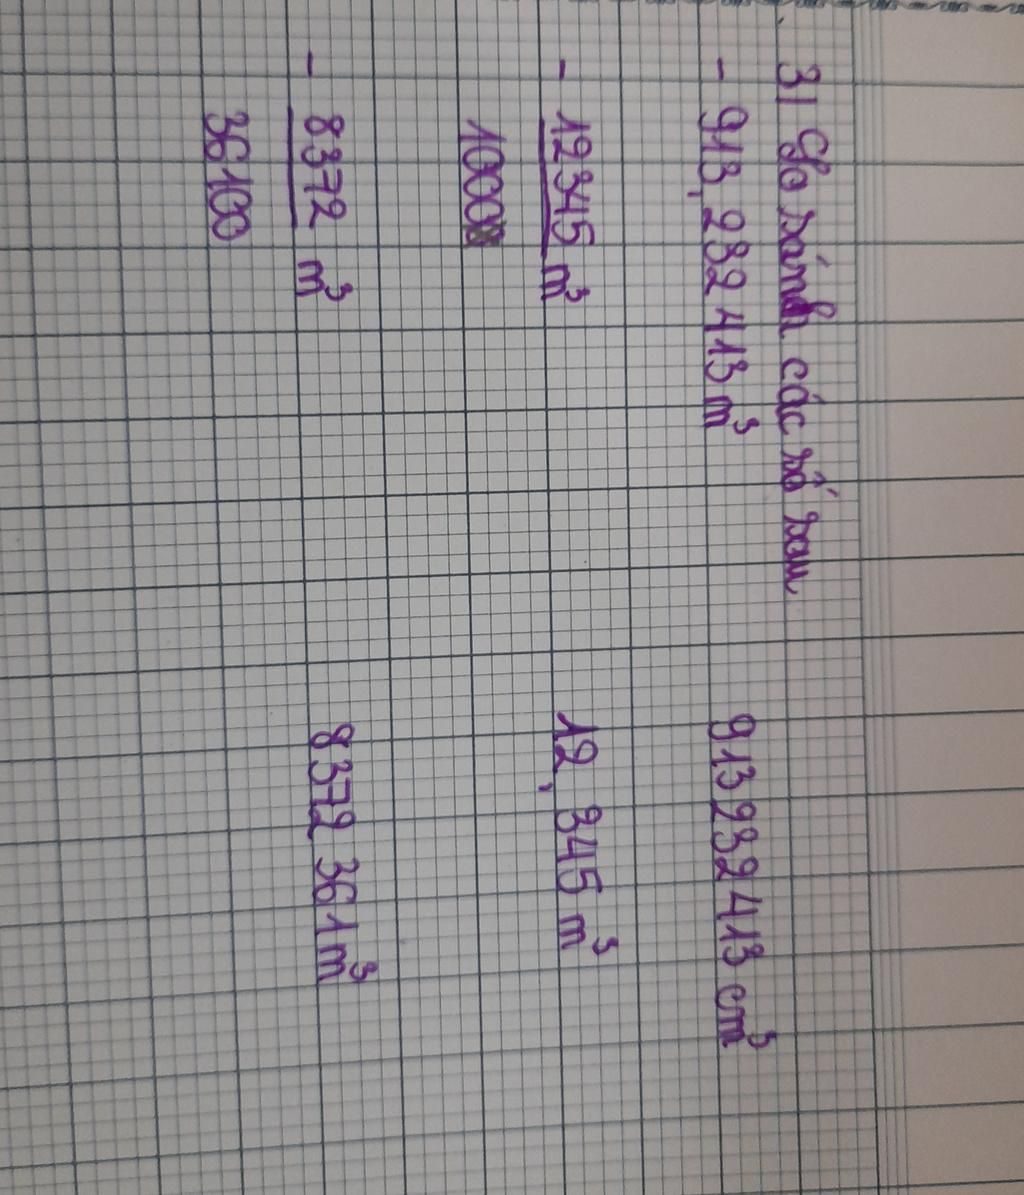 3/ So sánh các số sau
- 913,232 413 m³ 913 232 413 cm³
- 12345 m³ 12, 345 m³
1000
- 8372 m³ 8372 361 m³
36100